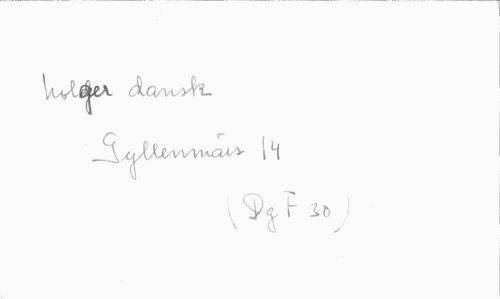 holger dansk
Gyllenmärs 14
(DgF 30)